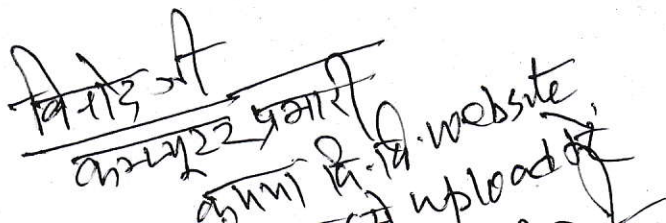 विनोद जी
कम्प्यूटर प्रभारी
कृपया वि.वि. website
upload करें